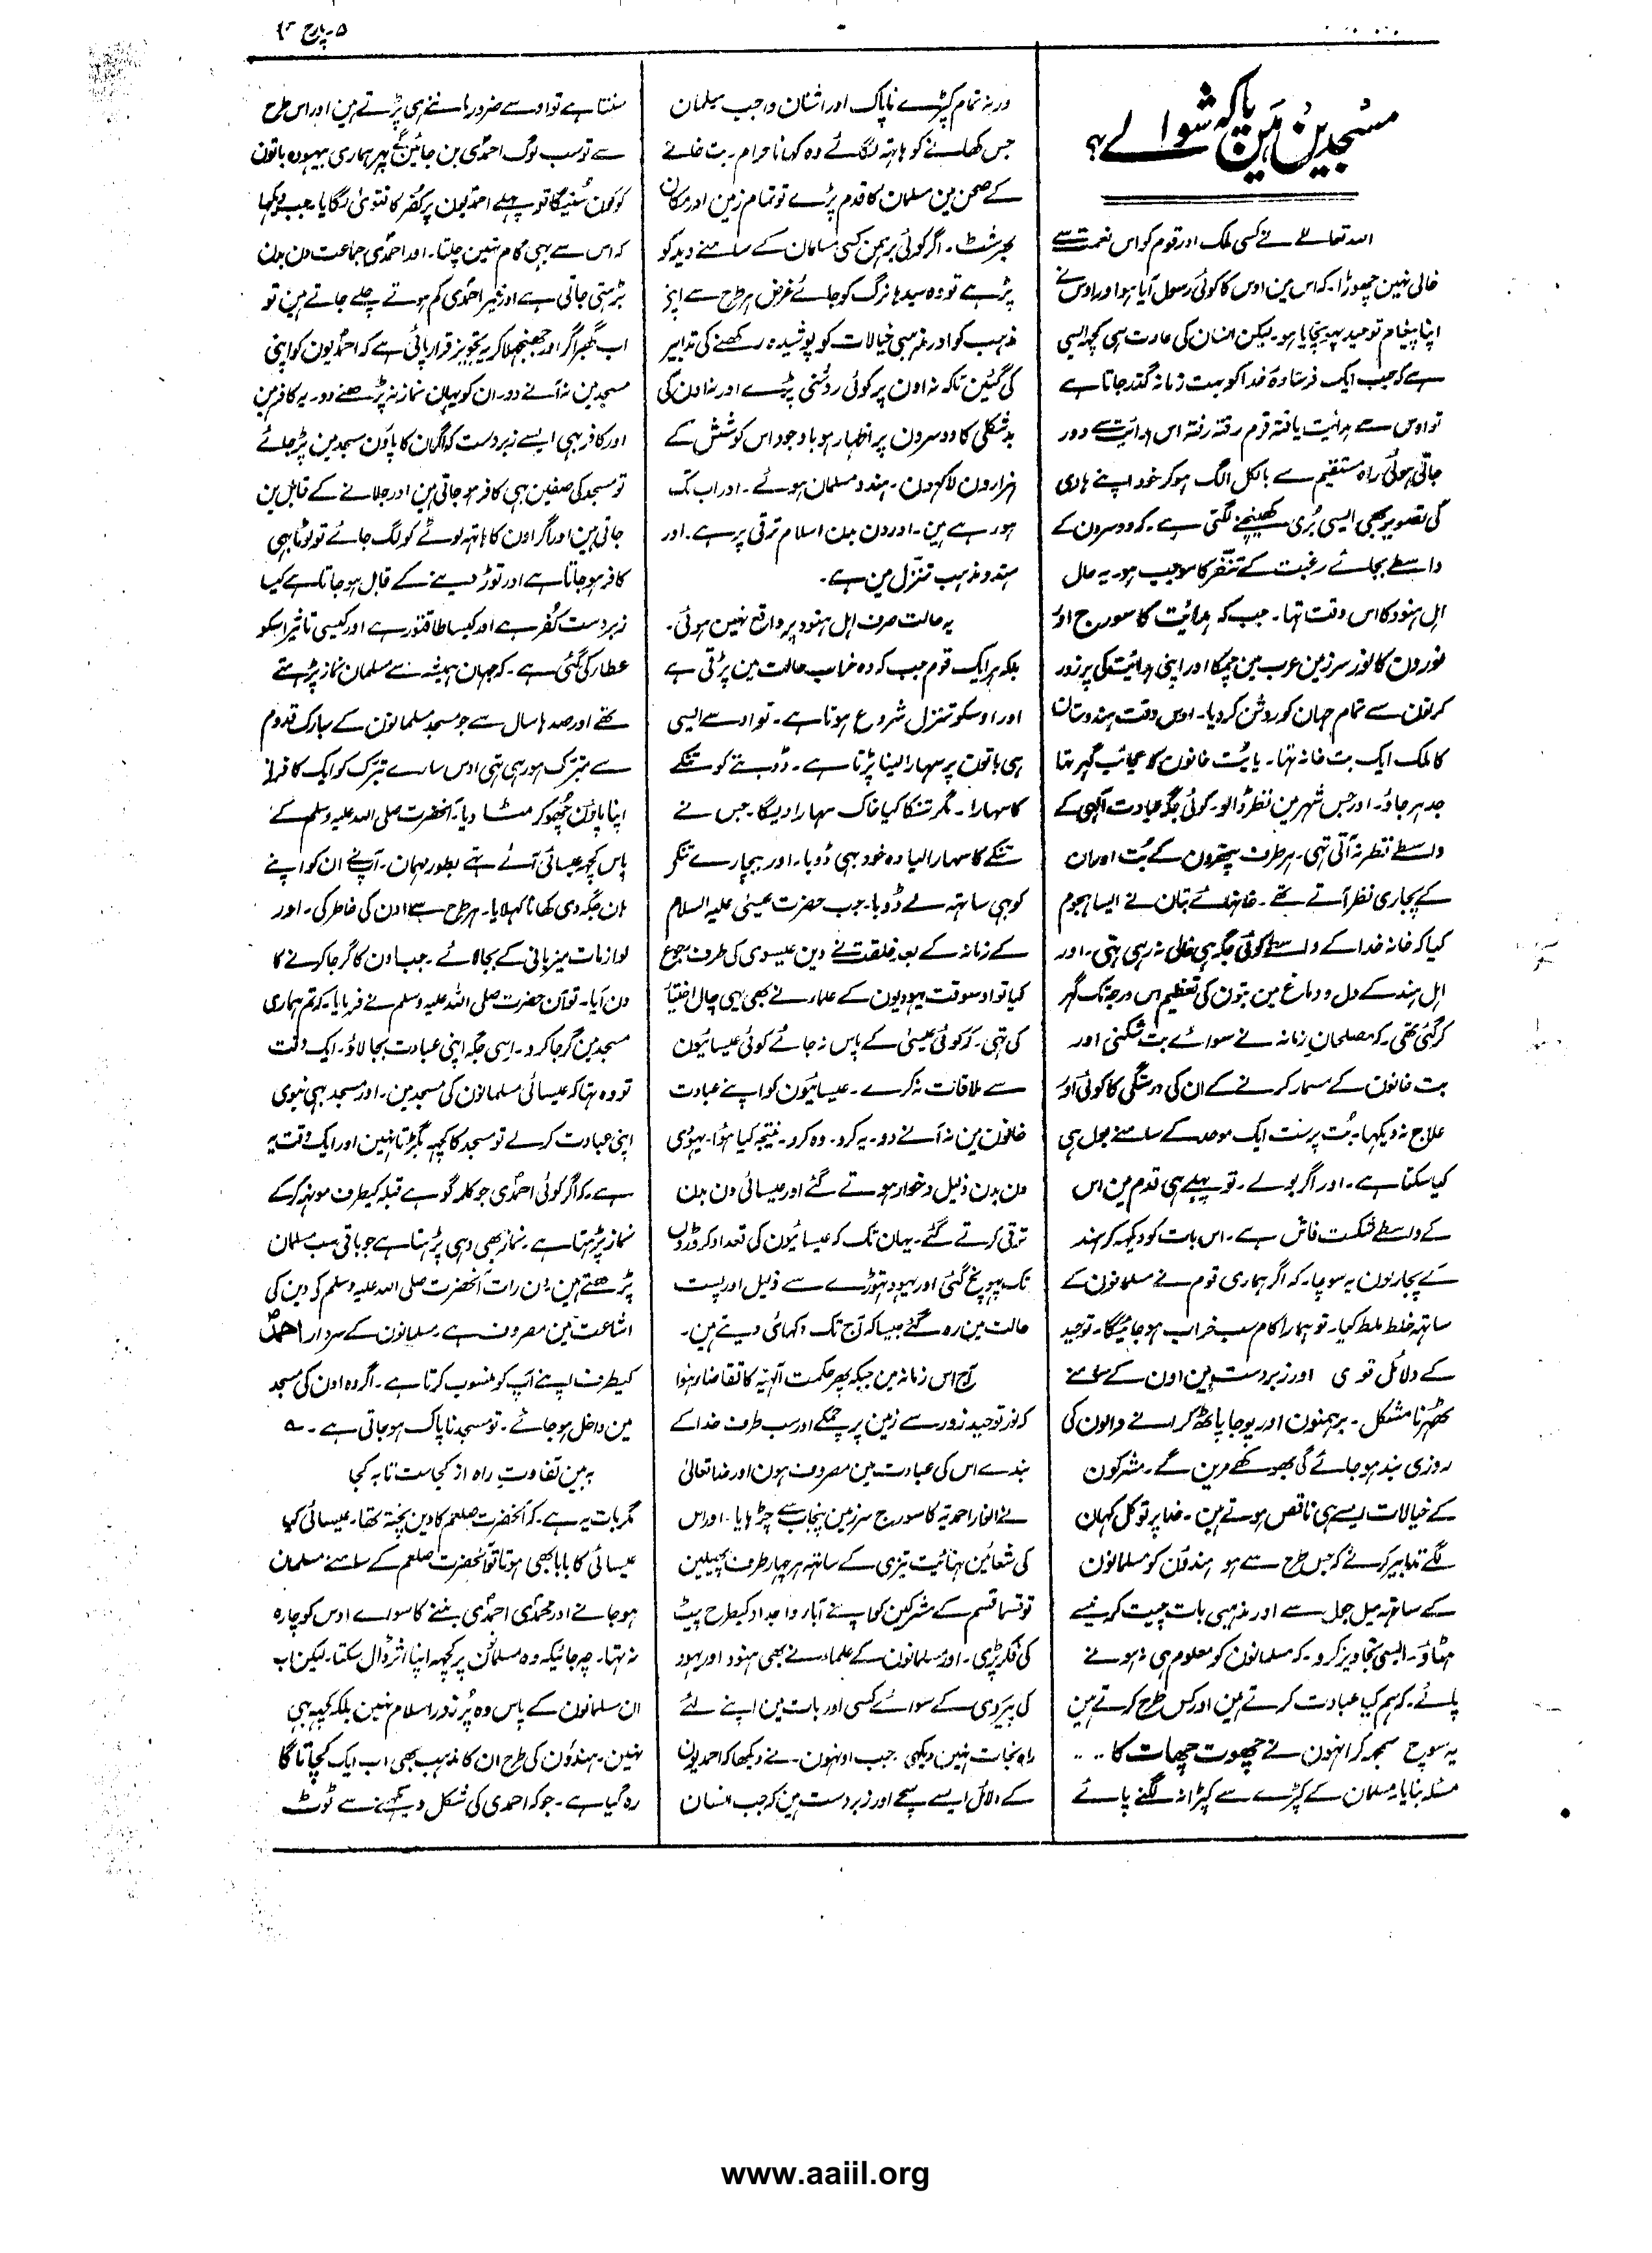 ۵۔ مارچ
مسجدیں ہیں یا کہ شوالے؟
اللہ تعالےٰ نے کسی ملک اور قوم کو اس نعمت سے
خالی نہین چھوڑا۔ کہ اس مین اوس کا کوئی رسول آیا ہو اور اوس نے
اپنا پیغام توحید پہونچایا ہو۔ لیکن انسان کی عادت ہی کچہ ایسی
ہے کہ جب ایک فرستادہ خدا کو بہت زمانہ گذر جاتا ہے
تو اوس سے ہدائیت یافتہ قوم رفتہ رفتہ اس ہدائیت سے دور
جاتی ہوئی راہ مستقیم سے بالکل الگ ہو کر خود اپنے ہادی
کی تصویر بھی ایسی بُری کھینچنے لگتی ہے۔ کہ دوسرون کے
واسطے بجائے رغبت کے تنفّر کا موجب ہو۔ یہ حال
اہل ہنود کا اس وقت تہا۔ جب کہ ہدائیت کا سورج اور
نورون کا نور سرزمین عرب مین چمکا اور اپنی ہدائیت کی پر زور
کرنون سے تمام جہان کو روشن کر دیا۔ اوس وقت ہندوستان
کا ملک ایک بت خانہ تہا۔ یا بُت خانون کا عجائب گہر تہا
جدہر جاؤ۔ اور جس شہر مین نظر ڈالو۔ کوئی جگہ عبادت الٰہی کے
واسطے نظر نہ آتی تہی۔ ہر طرف پتھرون کے بُت اور ان
کے پجاری نظر آتے تھے۔ خانہائے بتان نے ایسا ہجوم
کیا کہ خانہ خدا کے واسطے کوئی جگہ ہی خالی نہ رہی تہی۔ اور
اہل ہند کے دل و دماغ مین بتون کی تعظیم اس درجہ تک گہر
کر گئی تھی۔ کہ مصلحانِ زمانہ نے سوائے بت شکنی اور
بت خانون کے مسمار کرنے کے ان کی درستگی کا کوئی اور
علاج نہ دیکہا۔ بُت پرست ایک موحد کے سامنے بول ہی
کیا سکتا ہے۔ اور اگر بولے۔ تو پہلے ہی قدم مین اس
کے واسطے شکست فاش ہے۔ اس بات کو دیکہہ کر ہند
کے پجاریون یہ سوچا۔ کہ اگر ہماری قوم نے مسلمانون کے
ساتہہ خلط ملط کیا۔ تو ہمارا کام سب خراب ہو جائیگا۔ توحید
کے دلائل قوی اور زبردست ہین اون کے سامنے
ٹھہرنا مشکل۔ برہمنون اور پوجا پاٹھ کرانے والون کی
روزی بند ہو جائے گی بھوکھے مرین گے۔ مشرکون
کے خیالات ایسے ہی ناقص ہوتے ہین۔ خدا پر توکل کہان
لگے تدابیر کرنے کہ جس طرح سے ہو ہندوؤن کو مسلمانون
کے ساتہہ میل جول سے اور مذہبی بات چیت کرنیسے
ہٹاؤ۔ ایسی تجاویز کرو۔ کہ مسلمانون کو معلوم ہی نہ ہونے
پائے۔ کہ ہم کیا عبادت کرتے ہین اور کس طرح کرتے ہین
یہ سوچ سمجہ کر انہون نے چھوت چھات کا ....
مسئلہ بنایا۔ مسلمان کے کپڑے سے کپڑا نہ لگنے پائے
ورنہ تمام کپڑے ناپاک اور اشنان واجب مسلمان
جس کھانے کو ہاتہہ لگائے وہ کہانا حرام۔ بت خانے
کے صحن مین مسلمان کا قدم پڑے تو تمام زمین اور مکان
بھرشٹ۔ اگر کوئی برہمن کسی مسلمان کے سامنے وید کو
پڑہے تو وہ سیدہا نرگ کو جائے غرض ہر طرح سے اپنے
مذہب کو اور مذہبی خیالات کو پوشیدہ رکھنے کی تدابیر
کی گئین تاکہ نہ اون پر کوئی روشنی پڑے اور نہ اون کی
بد شکلی کا دوسرون پر اظہار ہو باوجود اس کوشش کے
ہزارون لاکہون۔ ہندو مسلمان ہوئے۔ اور اب تک
ہو رہے ہین۔ اور دن بدن اسلام ترقی پر ہے۔ اور
ہندو مذہب تنزّل مین ہے۔
یہ حالت صرف اہل ہنود پر واقع نہین ہوئی۔
بلکہ ہر ایک قوم جب کہ وہ خراب حالت مین پڑتی ہے
اور اوسکو تنزل شروع ہوتا ہے۔ تو اوسے ایسی
ہی باتون پر سہارا لینا پڑتا ہے۔ ڈوبتے کو تنکے
کا سہارا۔ مگر تنکا کیا خاک سہارا دیگا۔ جس نے
تنکے کا سہارا لیا وہ خود بہی ڈوبا۔ اور بیچارے تنکے
کو بہی ساتہہ لے ڈوبا۔ جب حضرت عیسٰی علیہ السلام
کے زمانہ کے بعد خلقت نے دین عیسوی کی طرف رجوع
کیا تو اوسوقت یہودیون کے علماء نے بھی یہی چال اختیار
کی تہی۔ کہ کوئی عیسیٰ کے پاس نہ جائے کوئی عیسائیون
سے ملاقات نہ کرے۔ عیسائیون کو اپنے عبادت
خانون مین نہ آنے دو۔ یہ کرو۔ وہ کرو۔ نتیجہ کیا ہوا۔ یہودی
دن بدن ذلیل و خوار ہوتے گئے اور عیسائی دن بدن
ترقی کرتے گئے۔ یہان تک کہ عیسائیون کی تعداد کروڑون
تک پہونچ گئی اور یہود تہوڑے سے ذلیل اور پست
حالت مین رہ گئے جیسا کہ آج تک دکہائی دیتے ہین۔
آج اس زمانہ مین جبکہ پھر حکمت الٰہیّہ کا تقاضاء ہوا
کہ نور توحید زور سے زمین پر چمکے اور سب طرف خدا کے
بندے اس کی عبادت مین مصروف ہون اور خدا تعالیٰ
نے انوار احمدیہ کا سورج سرزمین پنجاب سے چڑہایا۔ اور اس
کی شعائین نہائیت تیزی کے ساتہہ ہر چہار طرف پھیلین
تو قسما قسم کے مشرکین کو اپنے آباء و اجداد کیطرح پیٹ
کی فکر پڑی۔ اور مسلمانون کے علماء نے بھی ہنود اور یہود
کی پیروی کے سوائے کسی اور بات مین اپنے لئے
راہ نجات نہین دیکہی۔ جب اونہون نے دیکھا کہ احمدیون
کے دلائل ایسے سچے اور زبردست ہین کہ جب انسان
سنتا ہے تو اوسے ضرور ماننے ہی پڑتے ہین اور اس طرح
سے تو سب لوگ احمدی بن جائین گے پہر ہماری بیہودہ باتون
کو کون سُنیگا تو پہلے احمدیون پر کفر کا فتویٰ لگایا۔ جب دیکہا
کہ اس سے بہی کام نہین چلتا۔ اور احمدی جماعت دن بدن
بڑہتی جاتی ہے اور غیر احمدی کم ہوتے چلے جاتے ہین تو
اب گھبرا کر اور جھنجھلا کر یہ تجویز قرار پائی ہے کہ احمدیون کو اپنی
مسجد مین نہ آنے دو۔ ان کو یہان نماز نہ پڑھنے دو۔ یہ کافر ہین
اور کافر بہی ایسے زبردست کہ اگر ان کا پاؤن مسجد مین پڑ جائے
تو مسجد کی صفین ہی کافر ہو جاتی ہین اور جلانے کے قابل بن
جاتی ہین اور اگر اون کا ہاتہہ لوٹے کو لگ جائے تو لوٹا بہی
کافر ہو جاتا ہے اور توڑ دینے کے قابل ہو جاتا ہے کیا
زبردست کُفر ہے اور کیسا طاقتور ہے اور کیسی تاثیر اسکو
عطا کی گئی ہے۔ کہ جہان ہمیشہ سے مسلمان نماز پڑہتے
تھے اور صدہا سال سے جو مسجد مسلمانون کے مبارک قدوم
سے متبرک ہو رہی تہی اوس سارے تبرّک کو ایک کافر نے
اپنا پاؤن چُھو کر مٹا دیا۔ آنحضرت صلی اللہ علیہ وسلم کے
پاس کچہ عیسائی آئے تھے بطور مہمان۔ آپنے ان کو اپنے
ہان جگہ دی کھانا کہلایا۔ ہر طرح سے اون کی خاطر کی۔ اور
لوازمات میزبانی کے بجا لائے۔ جب اون کا گرجا کرنے کا
دن آیا۔ تو آن حضرت صلی اللہ علیہ وسلم نے فرمایا۔ کہ تم ہماری
مسجد مین گرجا کرو۔ اسی جگہ اپنی عبادت بجا لاؤ۔ ایک وقت
تو وہ تہا کہ عیسائی مسلمانون کی مسجد مین۔ اور مسجد بہی نبوی
اپنی عبادت کر لے تو مسجد کا کچہہ بگڑتا نہین اور ایک وقت یہ
ہے۔ کہ اگر کوئی احمدی جو کلمہ گو ہے قبلہ کیطرف مونہہ کر کے
نماز پڑہتا ہے۔ نماز بھی وہی پڑہتا ہے جو باقی سب مسلمان
پڑھتے ہین دن رات آنحضرت صلی اللہ علیہ وسلم کی دین کی
اشاعت مین مصروف ہے مسلمانون کے سردار احمدؐ
کیطرف اپنے آپ کو منسوب کرتا ہے۔ اگر وہ اون کی مسجد
مین داخل ہو جائے۔ تو مسجد ناپاک ہو جاتی ہے۔ ؎
بہ بین تفاوتِ راہ از کجاست تا بہ کجا
مگر بات یہ ہے۔ کہ آنحضرت صلعم کا دین پختہ تھا۔ عیسائی کیا
عیسائی کا بابا بھی ہوتا تو آنحضرت صلعم کے سامنے مسلمان
ہو جانے اور محمدی احمدی بننے کا سوائے اوس کو چارہ
نہ تہا۔ چہ جائیکہ وہ مسلمانون پر کچہہ اپنا اثر ڈال سکتا۔ لیکن اب
ان مسلمانون کے پاس وہ پُر زور اسلام نہین بلکہ کچہہ بہی
نہین۔ ہندؤون کی طرح ان کا مذہب بھی اب ایک کچا تاگا
رہ گیا ہے۔ جو کہ احمدی کی شکل دیکہنے سے ٹوٹ
www.aaiil.org